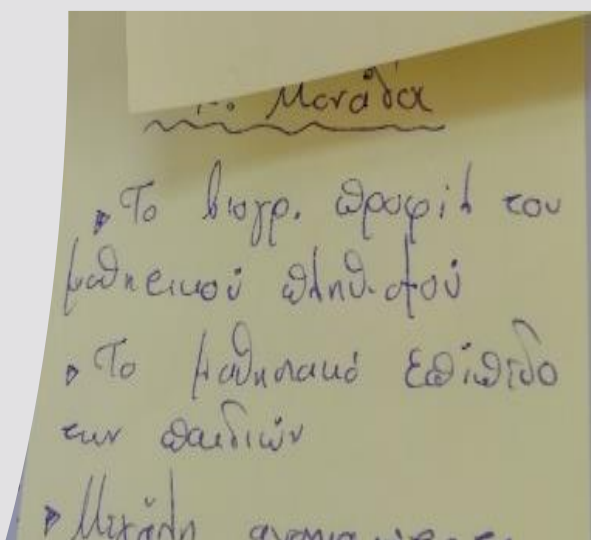 Μονάδα
Το βιογρ. προφίλ του
μαθητικού πληθ. σού
Το μαθησιακό επίπεδο
των παιδιών
Μεγάλη